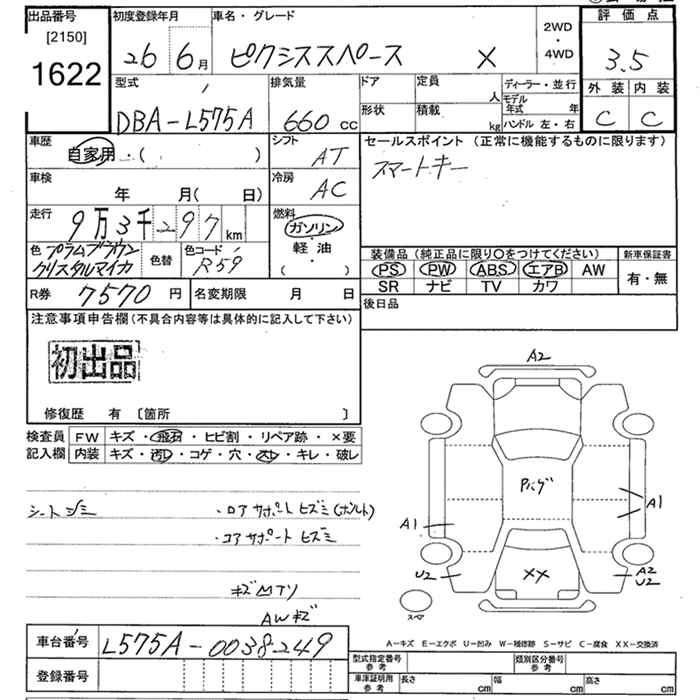 出品番号 初度登録年月 車名・グレード 2WD・4WD 評価点
[2150]
1622
26 6月 ピクシススペース X 3.5
型式 排気量 ドア 定員 人 ディーラー・並行 外装 内装
DBA-L575A 660 cc 形状 積載 kg モデル年式 年 C C
ハンドル 左・右
車歴 自家用・( ) シフト AT セールスポイント (正常に機能するものに限ります)
スマートキー
車検 年 月( 日) 冷房 AC
走行 9万3千297km 燃料 ガソリン・軽油・( )
色 プラムブラウン クリスタルマイカ 色替 色コード R59
装備品 (純正品に限り○をつけてください) 新車保証書
PS PW ABS エアB AW 有・無
SR ナビ TV カワ
R券 7570円 名変期限 月 日 後日品
注意事項申告欄(不具合内容等は具体的に記入して下さい)
初出品
修復歴 有 [箇所 ]
検査員 FW キズ・飛石・ヒビ割・リペア跡・×要
記入欄 内装 キズ・汚レ・コゲ・穴・スレ・キレ・破レ
シートシミ
・ロアサポートヒズミ(ボルト)
・コアサポートヒズミ
AWキズ
A2
Pバグ
A1
A1
U2
XX
A2
U2
スペア
A-キズ E-エクボ U-凹み W-補修跡 S-サビ C-腐食 XX-交換済
車台番号 L575A-0038249
登録番号
型式指定番号 参考 類別区分番号 参考
車庫証明用 参考 長さ cm 幅 cm 高さ cm